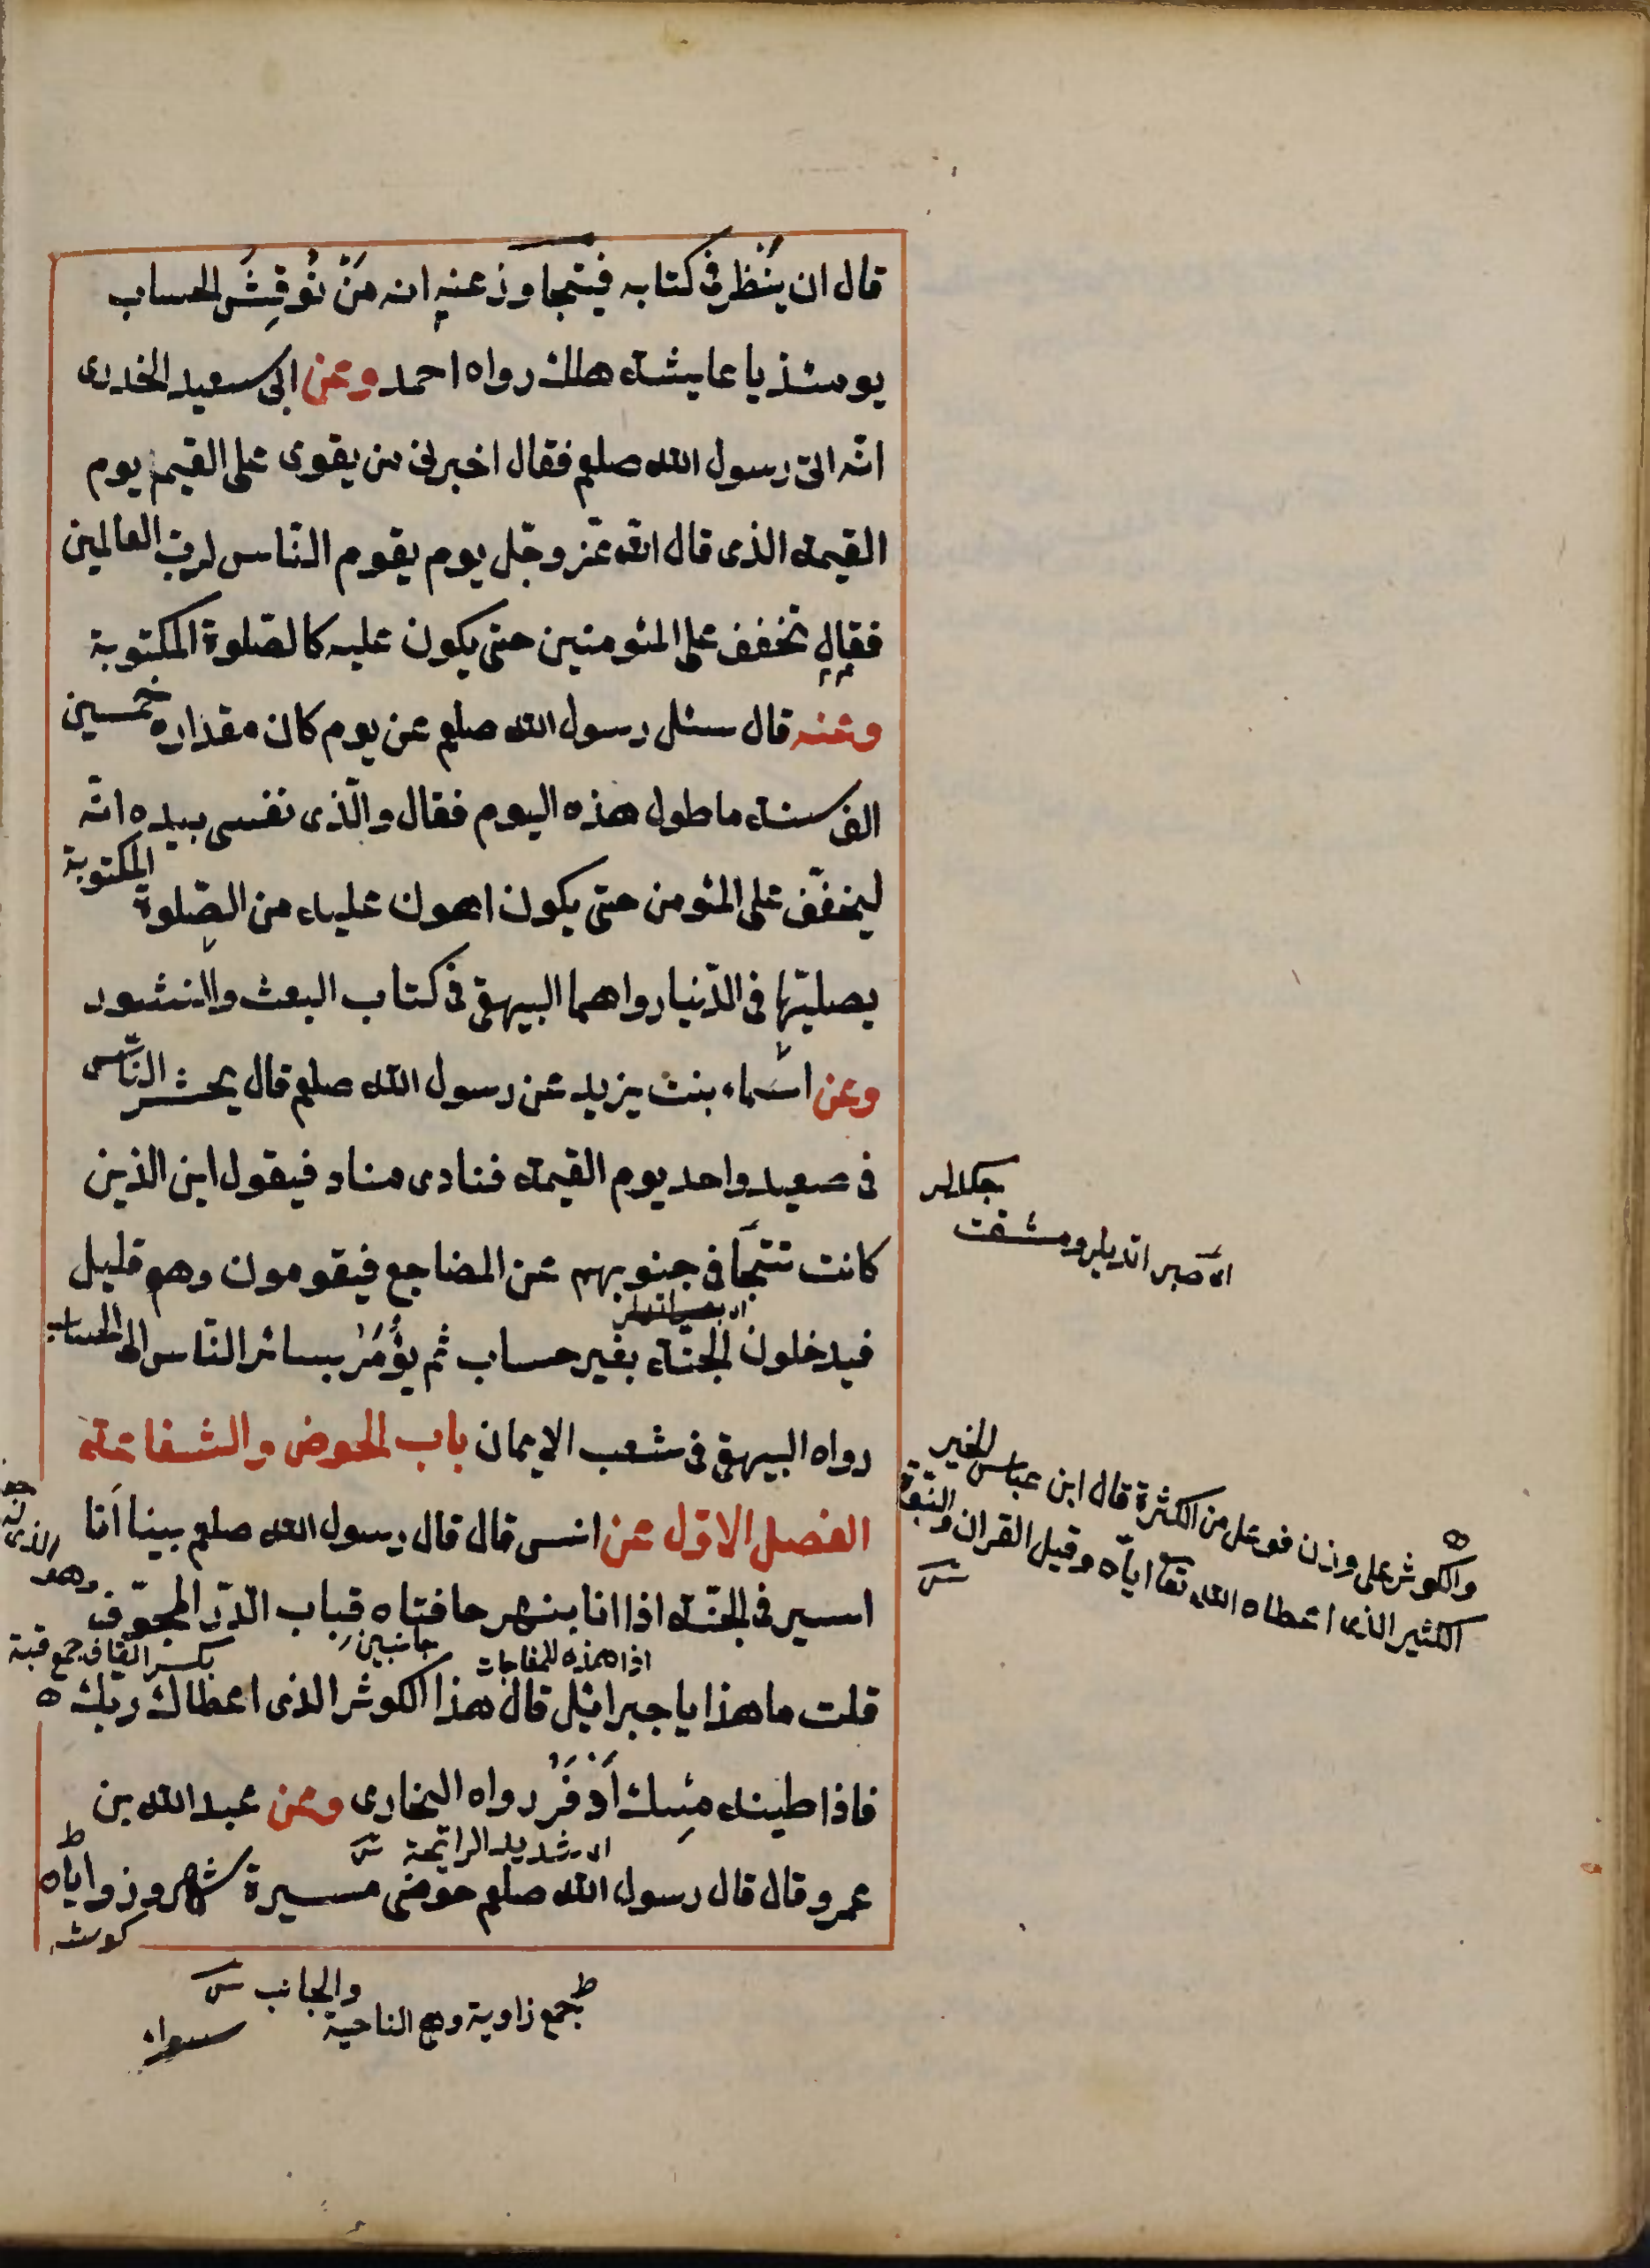 قال ان ينظر في كتابه فيتجاوز عنه انه من نوقش الحساب
يومئذ يا عايشة هلك رواه احمد وعن ابى سعيد الخدرى
انّه اتى رسول الله صلعم فقال اخبرنى من يقوى على القيم يوم
القيمة الذى قال الله عزّ وجلّ يوم يقوم النّاس لربّ العالمين
فقال تخفف على المئومنين حتى يكون عليه كالصّلوة المكتوبة
وعنه قال سئل رسول الله صلعم عن يوم كان مقداره خمسين
الف سنة ما طول هذه اليوم فقال والّذى نفسى بيده انّه
ليخفّف على المئومن حتى يكون اهون عليه من الصّلوة المكتوبة
يصليّها فى الدّنيا رواهما البيهقى فى كتاب البعث والنشور
وعن اسماء بنت يزيد عن رسول الله صلعم قال يحشر النّاس
فى صعيد واحد يوم القيمة فنادى مناد فيقول اين الذين
كانت تتجافى جنوبهم عن المضاجع فيقومون وهم قليل
فيدخلون الجنّة بغير حساب ثم يؤمر بسائر النّاس الى الحساب
رواه البيهقى فى شعب الايمان باب الحوض والشفاعة
الفصل الاوّل عن انس قال قال رسول الله صلعم بينا أنا
اسير فى الجنّة اذا انا بنهر حافتاه قباب الدّرّ المجوّف
جانبين
بكسر القاف جمع قبة
اذا هذه للمفاجات
قلت ما هذا يا جبرائيل قال هذا الكوثر الذى اعطاك ربّك ه
فاذا طينه مسك أذفر رواه البخارى وعن عبد الله بن
اى شديد الرائحة
عمرو قال قال رسول الله صلعم حوضى مسيرة شهر وزواياه
كوشه
ط جمع زاوية وهى الناحية
والجانب
سواء
والكوثر على وزن فوعل من الكثرة قال ابن عباس الخير
الكثير الذى اعطاه الله تعا ايّاه وقيل القران والنبوّة